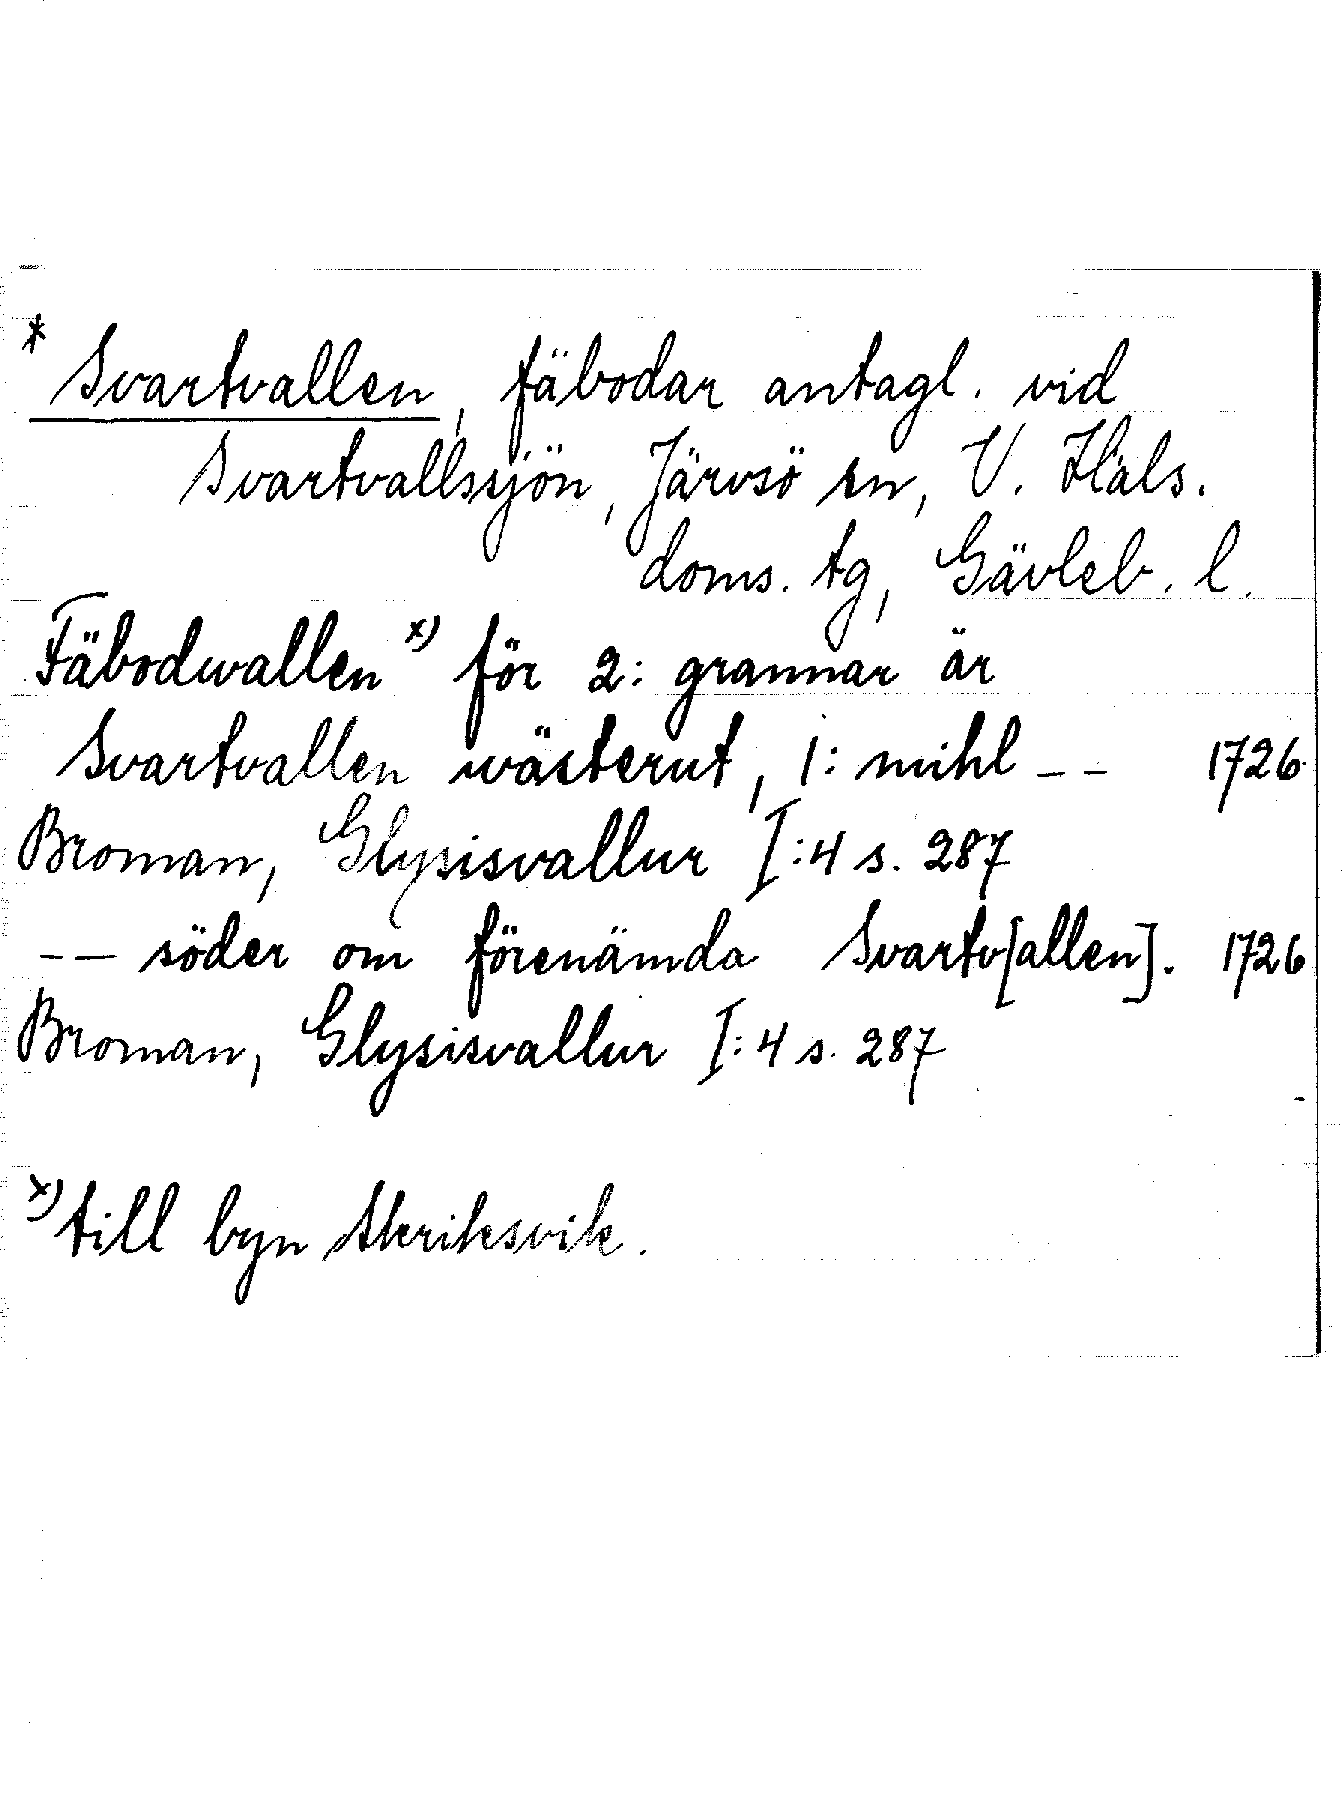 * Svartvallen, fäbodar antagl. vid
Svartvallssjön, Järvsö sn, V. Häls.
doms. tg, Gävleb. l.
Fäbodwallen x) för 2: grannar är
Svartvallen wästerut, 1: mihl -- 1726
Broman, Glysisvallur I:4 s. 287
-- söder om förenämda Svartv[allen]. 1726
Broman, Glysisvallur I:4 s. 287
x) till byn Skriksvik.